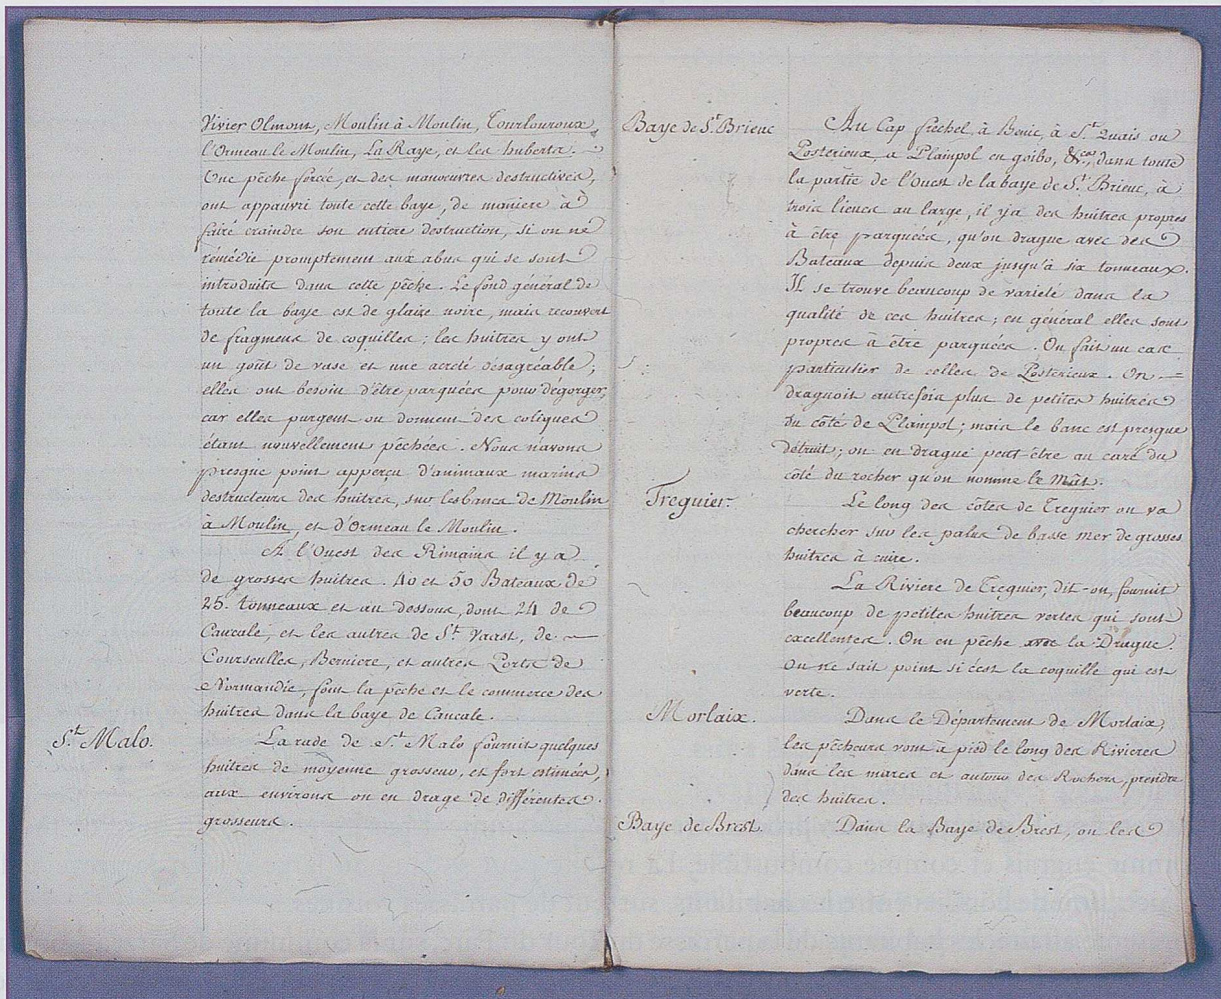 Vivier Olmont, Moulin à Moulin, Tourlouroux,
l'Ormeau le Moulin, La Raye, et les huberts.
Une pêche forcée, et des manoeuvres destructives,
ont appauvri toute cette baye, de maniere à
faire craindre son entiere destruction, si on ne
rémédie promptement aux abus qui se sont
introduits dans cette pêche. Le fond général de
toute la baye est de glaise noire, mais recouvert
de fragmens de coquilles; les huitres y ont
un goût de vase et une acreté désagréable;
elles ont besoin d'être parquées pour dégorger,
car elles purgent ou donnent des coliques
étant nouvellement pêchées. Nous n'avons
presque point apperçu d'animaux marins
destructeurs des huitres, sur les bancs de Moulin
à Moulin, et d'Ormeau le Moulin.
A l'Ouest des Rimains il y a
de grosses huitres. 40 et 50 Bateaux de
25. tonneaux et au dessous, dont 24 de
Cancale, et les autres de St. Vaast, de
Courseulles, Berniere, et autres Ports de
Normandie, font la pêche et le commerce des
huitres dans la baye de Cancale.
St. Malo.
La rade de St. Malo fournit quelques
huitres de moyenne grosseur, et fort estimées,
aux environs on en drage de différentes
grosseurs.
Baye de St. Brieuc
Au Cap fréchel, à Benic, à St. Quais ou
Postérieux, a Plainpol en goibo, &cas, dans toute
la partie de l'Ouest de la baye de St. Brieuc, à
trois lieues au large, il y a des huitres propres
à être parquées, qu'on drague avec des
Bateaux depuis deux jusqu'à six tonneaux.
Il se trouve beaucoup de varieté dans la
qualité de ces huitres; en général elles sont
propres à être parquées. On fait un cas
particulier de celles de Postérieux. On
draguoit autrefois plus de petites huitres
du côté de Plainpol; mais le banc est presque
détruit; on en drague peut être au caré du
côté du rocher qu'on nomme le Mâts.
Treguier.
Le long des côtes de Treguier on va
chercher sur les palus de basse mer de grosses
huitres à cuire.
La Riviere de Treguier, dit-on, fournit
beaucoup de petites huitres vertes qui sont
excellentes. On en pêche avec la Drague.
On ne sait point si c'est la coquille qui est
verte.
Morlaix.
Dans le Département de Morlaix,
les pêcheurs vont à pied le long des Rivieres
dans les mares et autour des Rochers, prendre
des huitres.
Baye de Brest.
Dans la Baye de Brest, on les